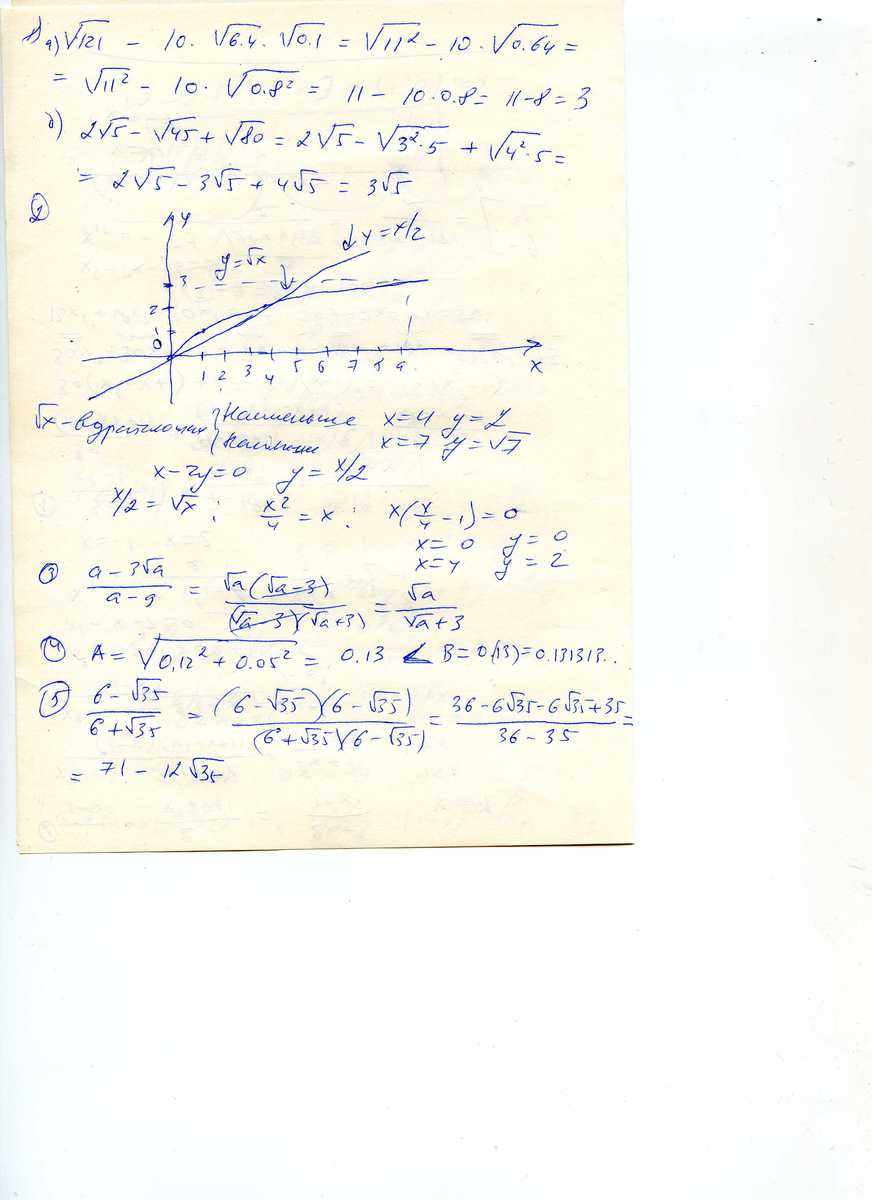 1) а) √121 - 10·√6.4·√0.1 = √11² - 10·√0.64 =
= √11² - 10·√0.8² = 11 - 10·0.8 = 11-8 = 3
б) 2√5 - √45 + √80 = 2√5 - √3²·5 + √4²·5 =
= 2√5 - 3√5 + 4√5 = 3√5
②
y
y=x/2
y=√x
3
2
1
0
1 2 3 4 5 6 7 8 9
x
√x - Наименьшее x=4 y=2
x=7 y=√7
x-2y=0 y=x/2
x/2 = √x ; x²/4 = x ; x(x/4 - 1) = 0
x=0 y=0
x=4 y=2
③ (a-3√a)/(a-9) = √a(√a-3)/((√a-3)(√a+3)) = √a/(√a+3)
④ A = √0,12²+0.05² = 0.13 < B=0,(13)=0.131313..
⑤ (6-√35)/(6+√35) = (6-√35)(6-√35)/((6+√35)(6-√35)) = (36-6√35-6√35+35)/(36-35) =
= 71 - 12√35